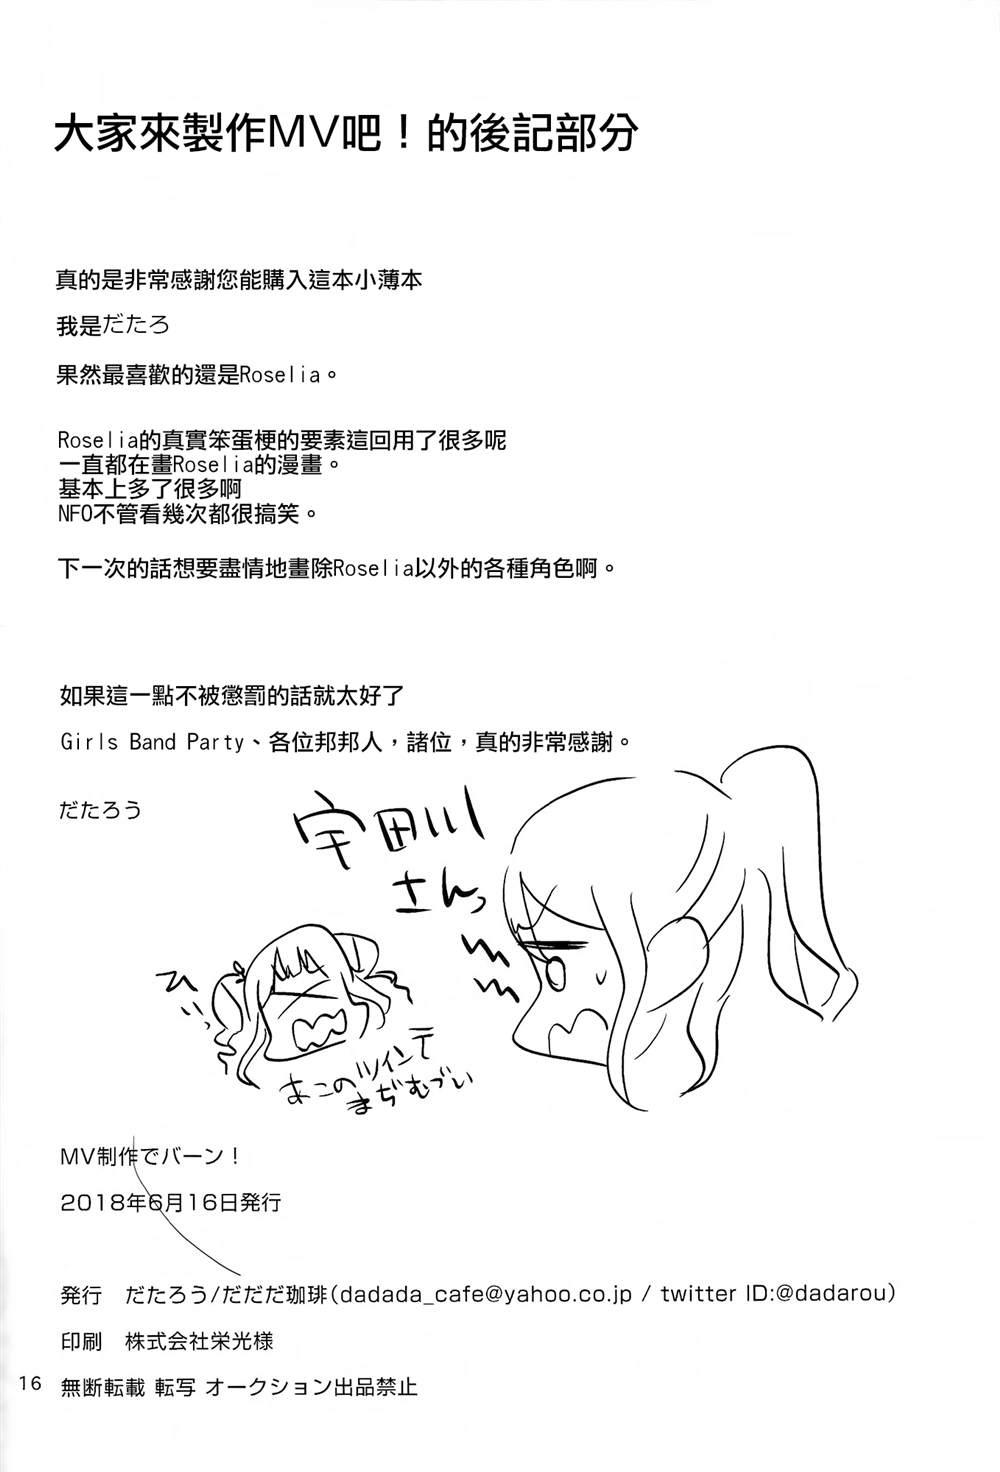 大家來製作MV吧！的後記部分
真的是非常感謝您能購入這本小薄本
我是だたろ
果然最喜歡的還是Roselia。
Roselia的真實笨蛋梗的要素這回用了很多呢
一直都在畫Roselia的漫畫。
基本上多了很多啊
NFO不管看幾次都很搞笑。
下一次的話想要盡情地畫除Roselia以外的各種角色啊。
如果這一點不被懲罰的話就太好了
Girls Band Party、各位邦邦人，諸位，真的非常感謝。
だたろう
宇田川
さんっ
ひぃっ
あこのツインテ
まぢむづい
MV制作でバーン！
2018年6月16日発行
発行　だたろう/だだだ珈琲(dadada_cafe@yahoo.co.jp / twitter ID:@dadarou)
印刷　株式会社栄光様
無断転載 転写 オークション出品禁止
16